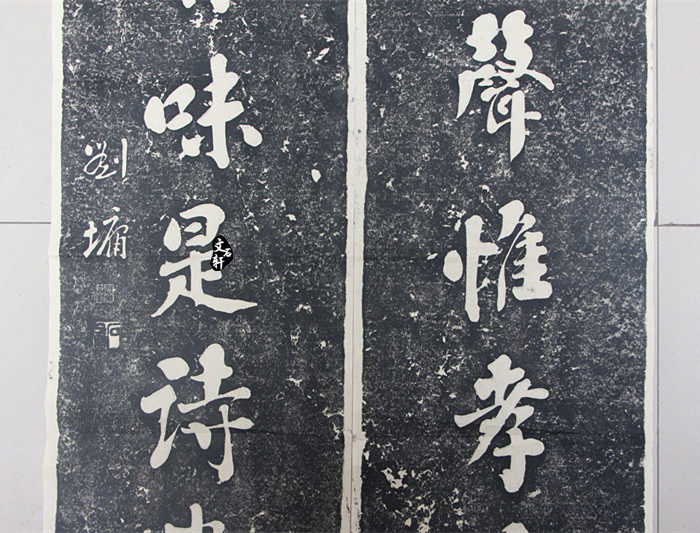 聲惟孝
味是詩書
劉墉
文石軒